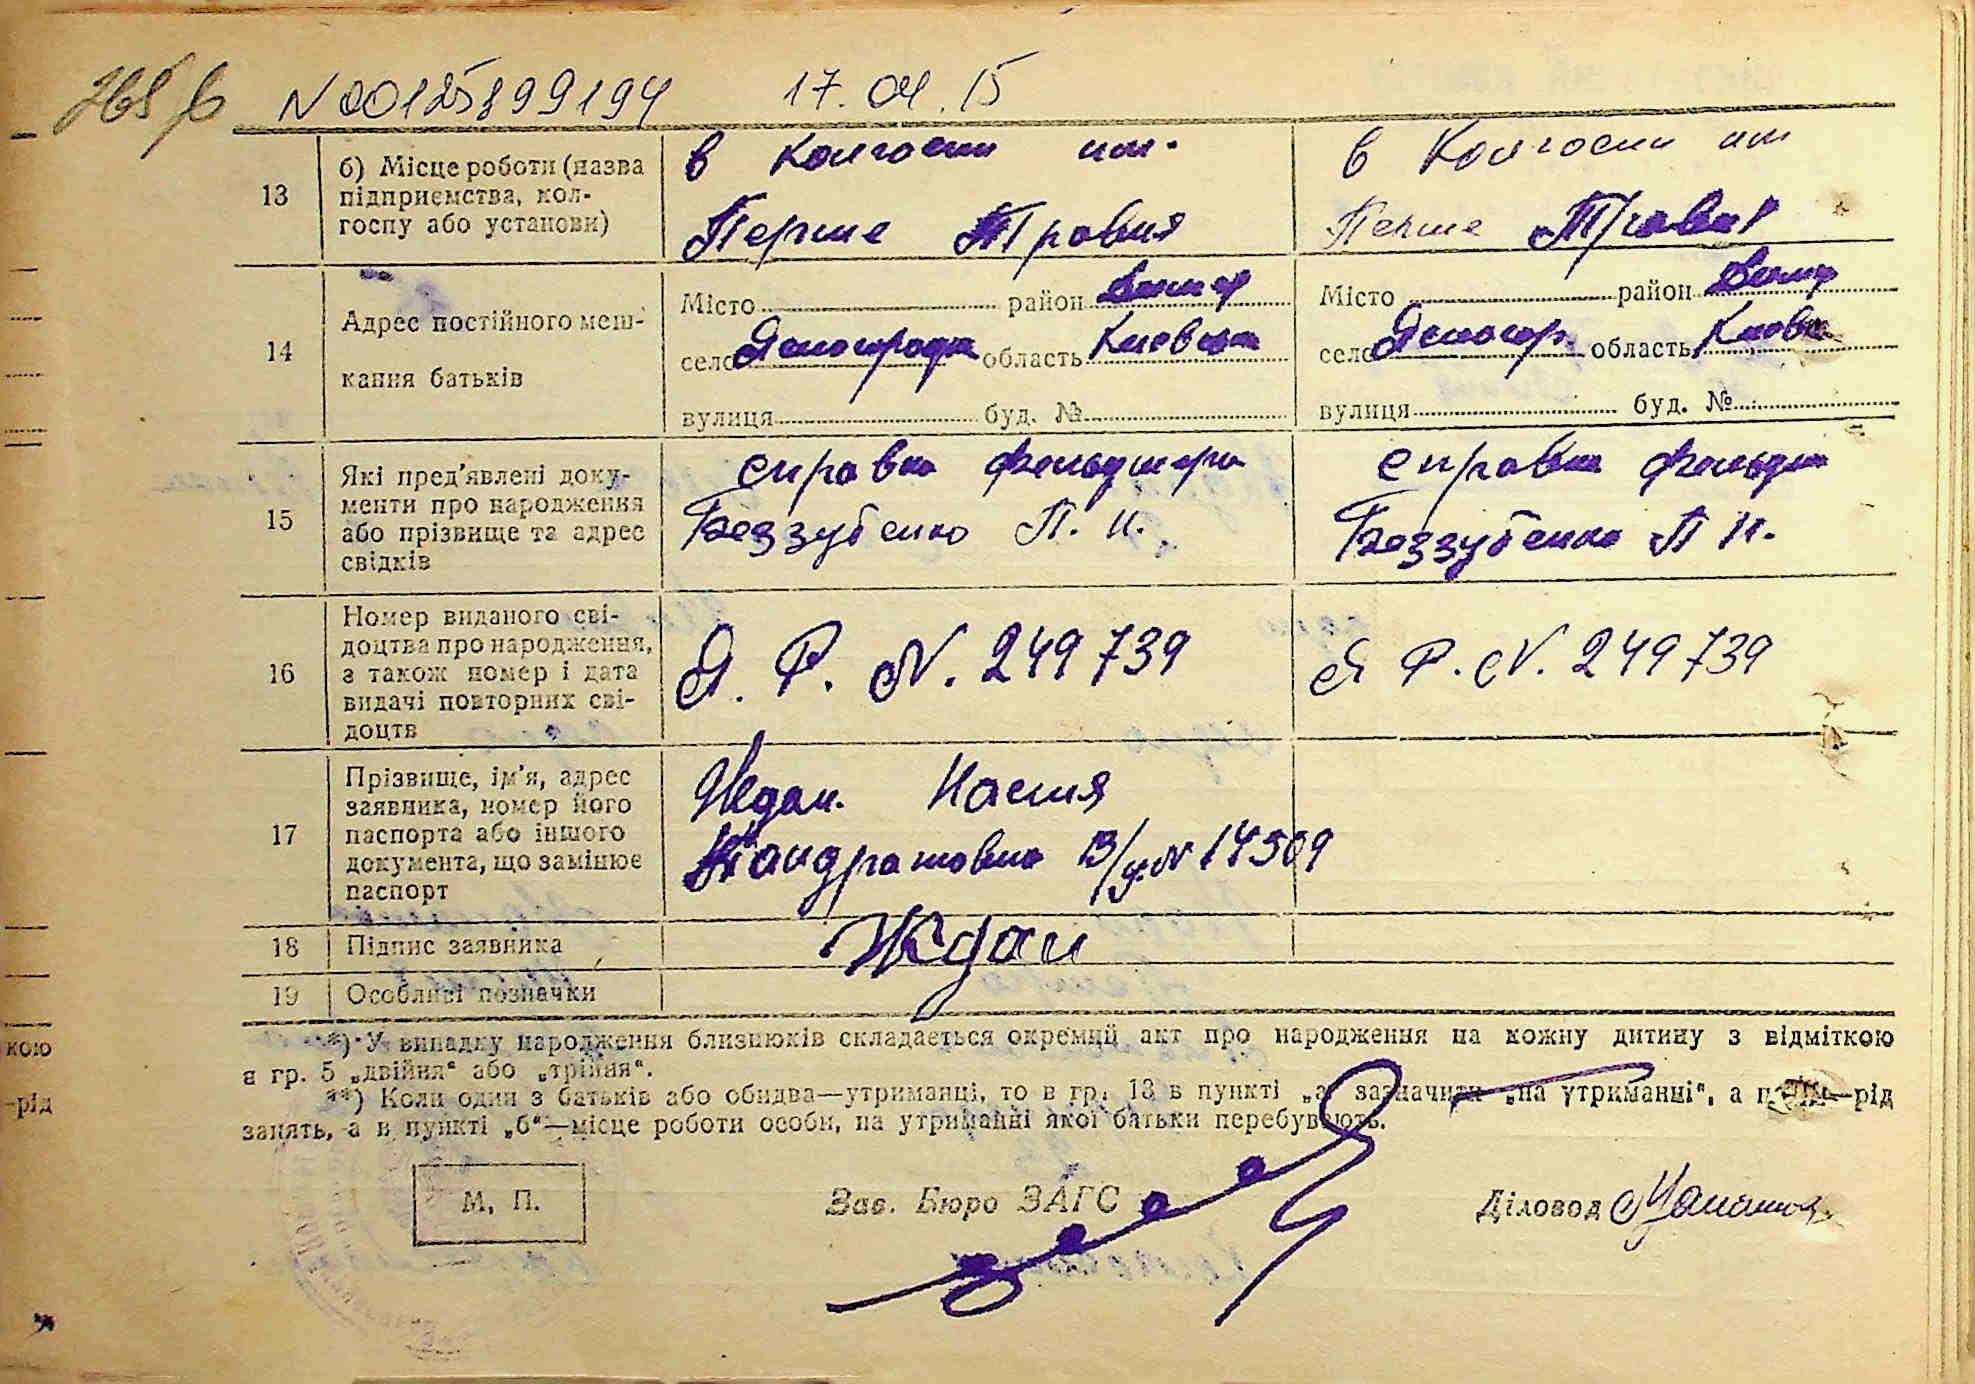 N 00125899194 17.04.15
13 б) Місце роботи (назва підприємства, кол-
госпу або установи)
в колгоспи им.
Перше Травня
в Колгоспи им
Перше Травня
14 Адрес постійного меш-
кання батьків
Місто район Димер
село Ясногородка область Киевска
вулиця буд. №
Місто район Димер
село Ясногор. область Киевск
вулиця буд. №
15 Які пред'явлені доку-
менти про народження
або прізвище та адрес
свідків
справка фельдшера
Беззубенко П. И.
справка фельдш
Беззубенко П И.
16 Номер виданого сві-
доцтва про народження,
а також номер і дата
видачі повторних сві-
доцтв
Я. Р. N. 249739
Я Р. N. 249739
17 Прізвище, ім'я, адрес
заявника, номер його
паспорта або іншого
документа, що замінює
паспорт
Ждан. Настя
Кондратовна В/у. N 14509
18 Підпис заявника
Ждан
19 Особливі позначки
*) У випадку народження близнюків складається окремий акт про народження на кожну дитину з відміткою
в гр. 5 „двійня“ або „трійня“.
**) Коли один з батьків або обидва—утриманці, то в гр. 13 в пункті „а“ зазначити „на утриманні“, а потім—рід
занять, а в пункті „б“—місце роботи особи, на утриманні якої батьки перебувають.
М. П.
Зав. Бюро ЗАГС
Діловод
кою
-рід